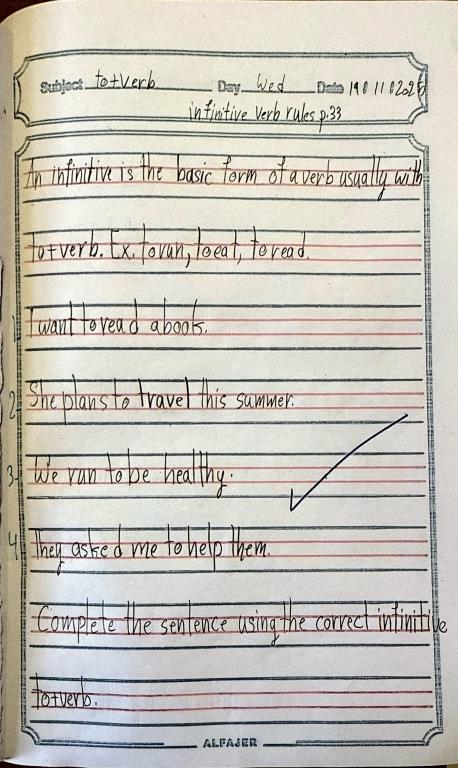 Subject to+verb Day Wed Date 19/11/2025
infinitive verb rules p.33
An infinitive is the basic form of a verb usually with
to+verb. Ex. to run, to eat, to read.
1 I want to read a book.
2- She plans to travel this summer.
3- We run to be healthy.
4 They asked me to help them.
Complete the sentence using the correct infinitive
to+verb.
ALFAJER